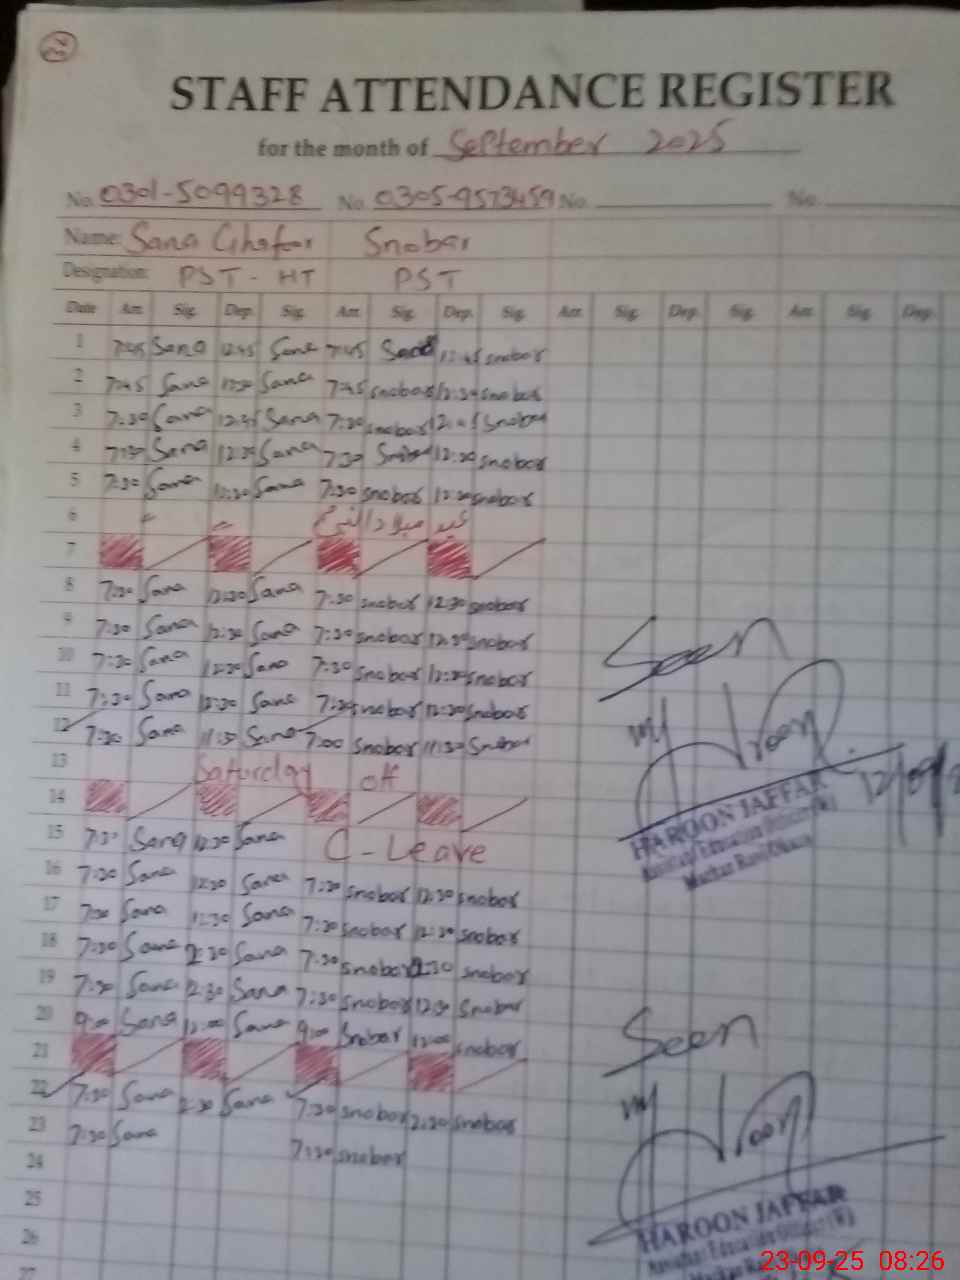 STAFF ATTENDANCE REGISTER
for the month of September 2025
No. 0301-5099328 No. 0305-9573459 No. No.
Name: Sana Ghafoor Snober
Designation: PST - HT PST
Date Arr. Sig. Dep. Sig. Arr. Sig. Dep. Sig. Arr. Sig. Dep. Sig. Arr. Sig. Dep.
1 7:45 Sana 12:45 Sana 7:45 12:45 snober
2 7:45 Sana 12:30 Sana 7:45 snober 12:30 snober
3 7:30 Sana Sana 7:30 snober Snober
4 7:30 Sana 12:30 Sana 7:30 Snober 12:30 snober
5 7:30 Sana 12:30 Sana 7:30 snober 12:30 snober
6 عید میلاد النبی
7
8 7:30 Sana 12:30 Sana 7:30 snober 12:30 snober
9 7:30 Sana 12:30 Sana 7:30 snober 12:30 snober
10 7:30 Sana 12:30 Sana 7:30 snober 12:30 snober
11 7:30 Sana 12:30 Sana 7:30 snober 12:30 snober
12 7:30 Sana 11:30 Sana 7:00 snober 11:30 Snober
13 Saturday off
14
15 7:30 Sana 12:30 Sana C-Leave
16 7:30 Sana 12:30 Sana 7:30 snober 12:30 snober
17 7:30 Sana 12:30 Sana 7:30 snober 12:30 snober
18 7:30 Sana 12:30 Sana 7:30 snober 12:30 snober
19 7:30 Sana 12:30 Sana 7:30 snober 12:30 Snober
20 9:00 Sana 12:00 Sana 9:00 Snober 12:00 snober
21
22 7:30 Sana 12:30 Sana 7:30 snober 12:30 snober
23 7:30 Sana 7:30 snober
24
25
26
27
Seen
HAROON JAFFAR
Seen
HAROON JAFFAR
23-09-25 08:26